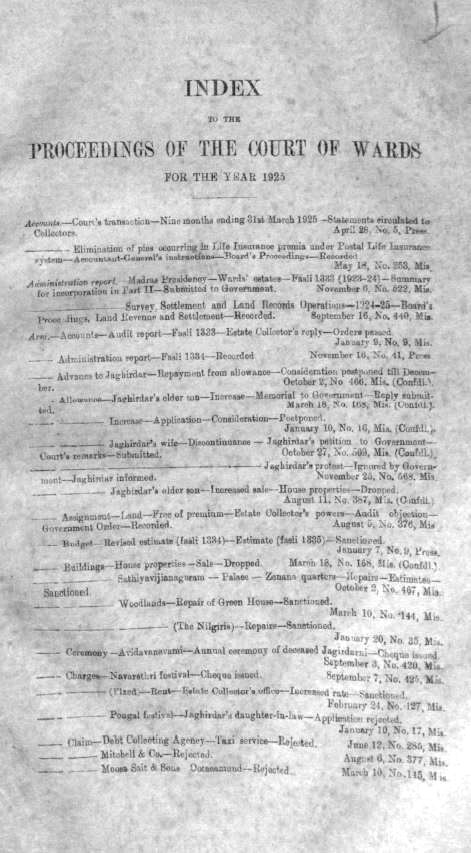 INDEX
TO THE
PROCEEDINGS OF THE COURT OF WARDS
FOR THE YEAR 1925
Accounts.—Court's transaction—Nine months ending 31st March 1925—Statements circulated to
Collectors. April 28, No. 5, Press.
—— Elimination of pies occurring in Life Insurance premia under Postal Life Insurance
system—Accountant-General's instructions—Board's Proceedings—Recorded.
May 18, No. 253, Mis.
Administration report.—Madras Presidency—Wards' estates—Fasli 1333 (1923-24)—Summary
for incorporation in Part II—Submitted to Government. November 6, No. 522, Mis.
—— Survey, Settlement and Land Records Operations—1924-25—Board's
Proceedings, Land Revenue and Settlement—Recorded. September 16, No. 440, Mis.
Arni.—Accounts—Audit report—Fasli 1333—Estate Collector's reply—Orders passed.
January 9, No. 9, Mis.
—— Administration report—Fasli 1334—Recorded November 16, No. 41, Press
—— Advance to Jaghirdar—Repayment from allowance—Consideration postponed till Decem-
ber. October 2, No 466, Mis. (Confdl.).
—— Allowance—Jaghirdar's older son—Increase—Memorial to Government—Reply submit-
ted. March 18, No. 168, Mis. (Confdl.).
—— —— Increase—Application—Consideration—Postponed.
January 10, No. 16, Mis. (Confdl.).
—— —— Jaghirdar's wife—Discontinuance—Jaghirdar's petition to Government—
Court's remarks—Submitted. October 27, No. 503, Mis. (Confdl.).
—— Jaghirdar's protest—Ignored by Govern-
ment—Jaghirdar informed. November 25, No. 568, Mis.
—— —— Jaghirdar's older son—Increased sale—House properties—Dropped.
August 11, No. 387, Mis. (Confdl.)
—— Assignment—Land—Free of premium—Estate Collector's powers—Audit objection—
Government Order—Recorded. August 5, No. 376, Mis
—— Budget—Revised estimate (fasli 1334)—Estimate (fasli 1335)—Sanctioned.
January 7, No. 2, Press.
—— Buildings—House properties—Sale—Dropped. March 18, No. 168, Mis. (Confdl.)
—— —— Sathiyavijianagaram—Palace—Zenana quarters—Repairs—Estimates—
Sanctioned. October 2, No. 467, Mis.
—— —— Woodlands—Repair of Green House—Sanctioned.
March 10, No. 144, Mis.
—— —— (The Nilgiris)—Repairs—Sanctioned.
January 20, No. 35, Mis.
—— Ceremony—Avidavanavami—Annual ceremony of deceased Jagirdarni—Cheque issued.
September 3, No. 420, Mis.
—— Charges—Navarathri festival—Cheque issued. September 7, No. 425, Mis.
—— —— (Fixed)—Rent—Estate Collector's office—Increased rate—Sanctioned.
February 24, No. 127, Mis.
—— —— Pongal festival—Jaghirdar's daughter-in-law—Application rejected.
January 10, No. 17, Mis.
—— Claim—Debt Collecting Agency—Taxi service—Rejected. June 12, No. 285, Mis.
—— —— Mitchell & Co.—Rejected. August 6, No. 377, Mis.
—— —— Moosa Sait & Sons Ootacamund—Rejected March 10, No. 145, Mis.